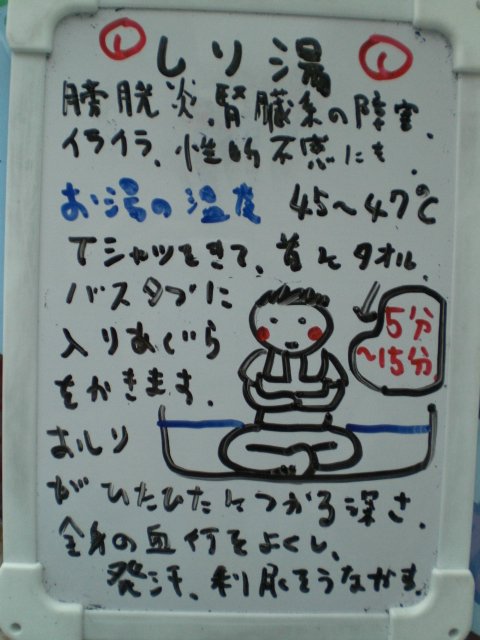 ① しり湯 ①
膀胱炎、腎臓系の障害、
イライラ、性的不感にも。
お湯の温度 45～47℃
Tシャツをきて、首にタオル、
バスタブに
入りあぐら
をかきます。
5分
～15分
おしり
がひたひたにつかる深さ。
全身の血行をよくし、
発汗、利尿をうながす。